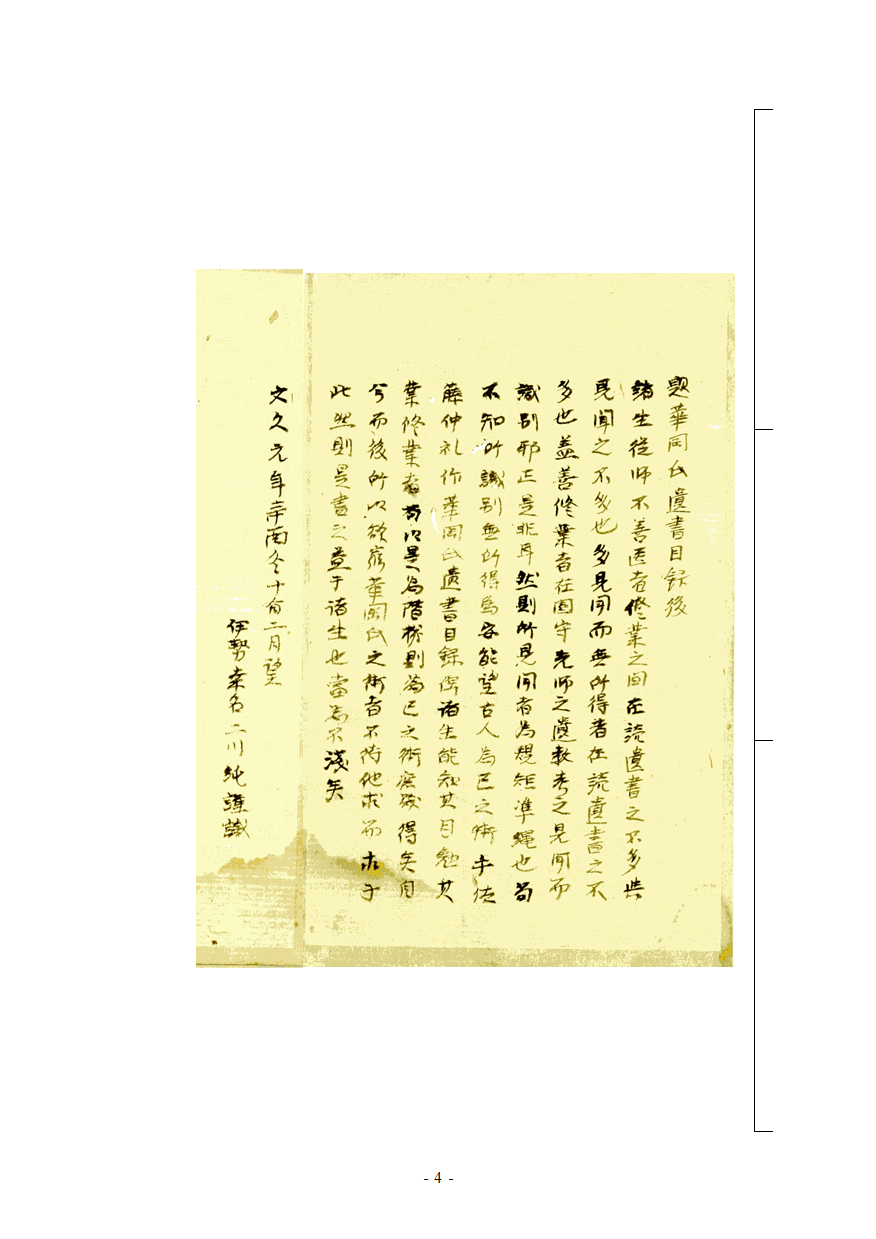 題華岡氏遺書目録後
諸生従師不善医者修業之間在読遺書之不多与
見聞之不多也多見聞而無所得者在読遺書之不
多也蓋善修業者在固守先師之遺教考之見聞而
識別邪正是非耳然則所見聞者為規矩準縄也苟
不知所識別無所得焉安能望古人為己之術乎佐
藤仲礼作華岡氏遺書目録俾諸生能知其目勉其
業修業者苟以是為階梯則為己之術庶幾得矣自
今而後所以欲窮華岡氏之術者不待他求而求于
此然則是書之益于諸生也当為不浅矣
文久元年辛酉冬十有二月望
伊勢桑名二川純謹識
- 4 -